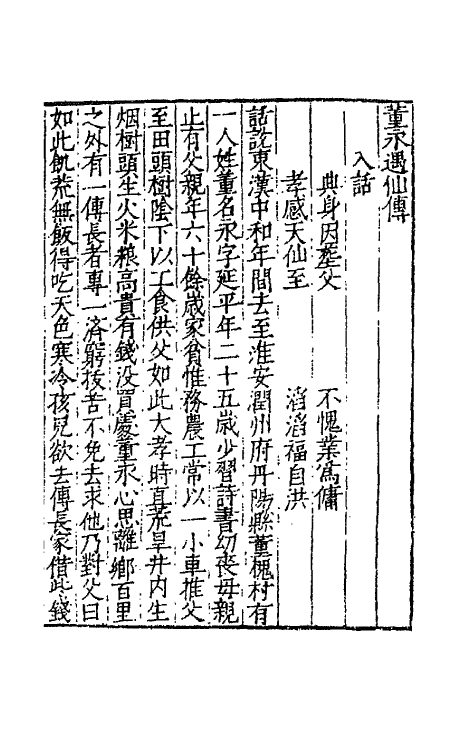 董永遇仙傳
入話
典身因塟父　不愧業爲傭
孝感天仙至　滔滔福自洪
話說東漢中和年間去至淮安潤州府丹陽縣董槐村有
一人姓董名永字延平年二十五歲少習詩書幼喪母親
止有父親年六十餘歲家貧惟務農工常以一小車推父
至田頭樹陰下以工食供父如此大孝時直荒旱井内生
烟樹頭生火米粮高貴有錢没買處董永心思離鄉百里
之外有一傅長者專一濟窮拔苦不免去求他乃對父曰
如此飢荒無飯得吃天色寒冷孩兒欲去傅長家借些錢